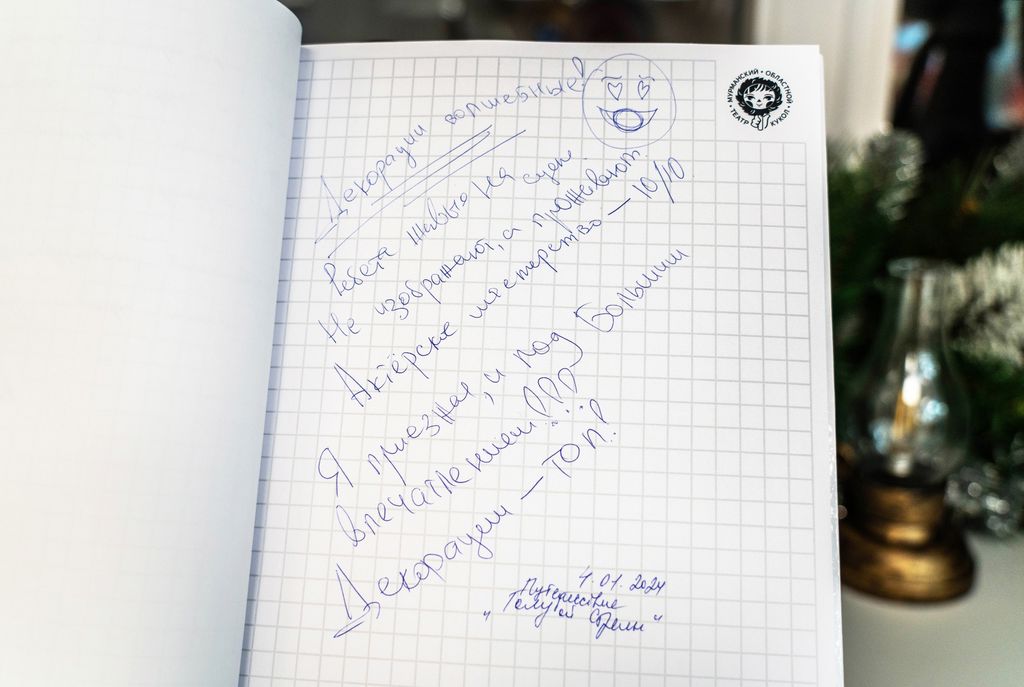 МУРМАНСКИЙ • ОБЛАСТНОЙ
ТЕАТР КУКОЛ
Декорации волшебные!
Ребята живые на сцене
Не изображают, а проживают
Актёрское мастерство – 10/10
Я приезжая, и под Большим
впечатлением!!!
Декорации – ТОП!!
4.01.2024
Путешествие
"Голубой Стрелы"